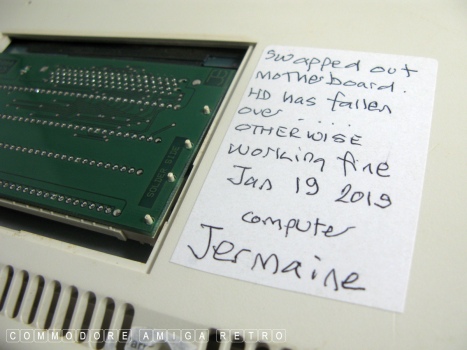 swapped out
motherboard.
HD has fallen
over .....
OTHERWISE
working fine
Jan 19 2019
computer
Jermaine
SOLDER SIDE
COMMODORE AMIGA RETRO